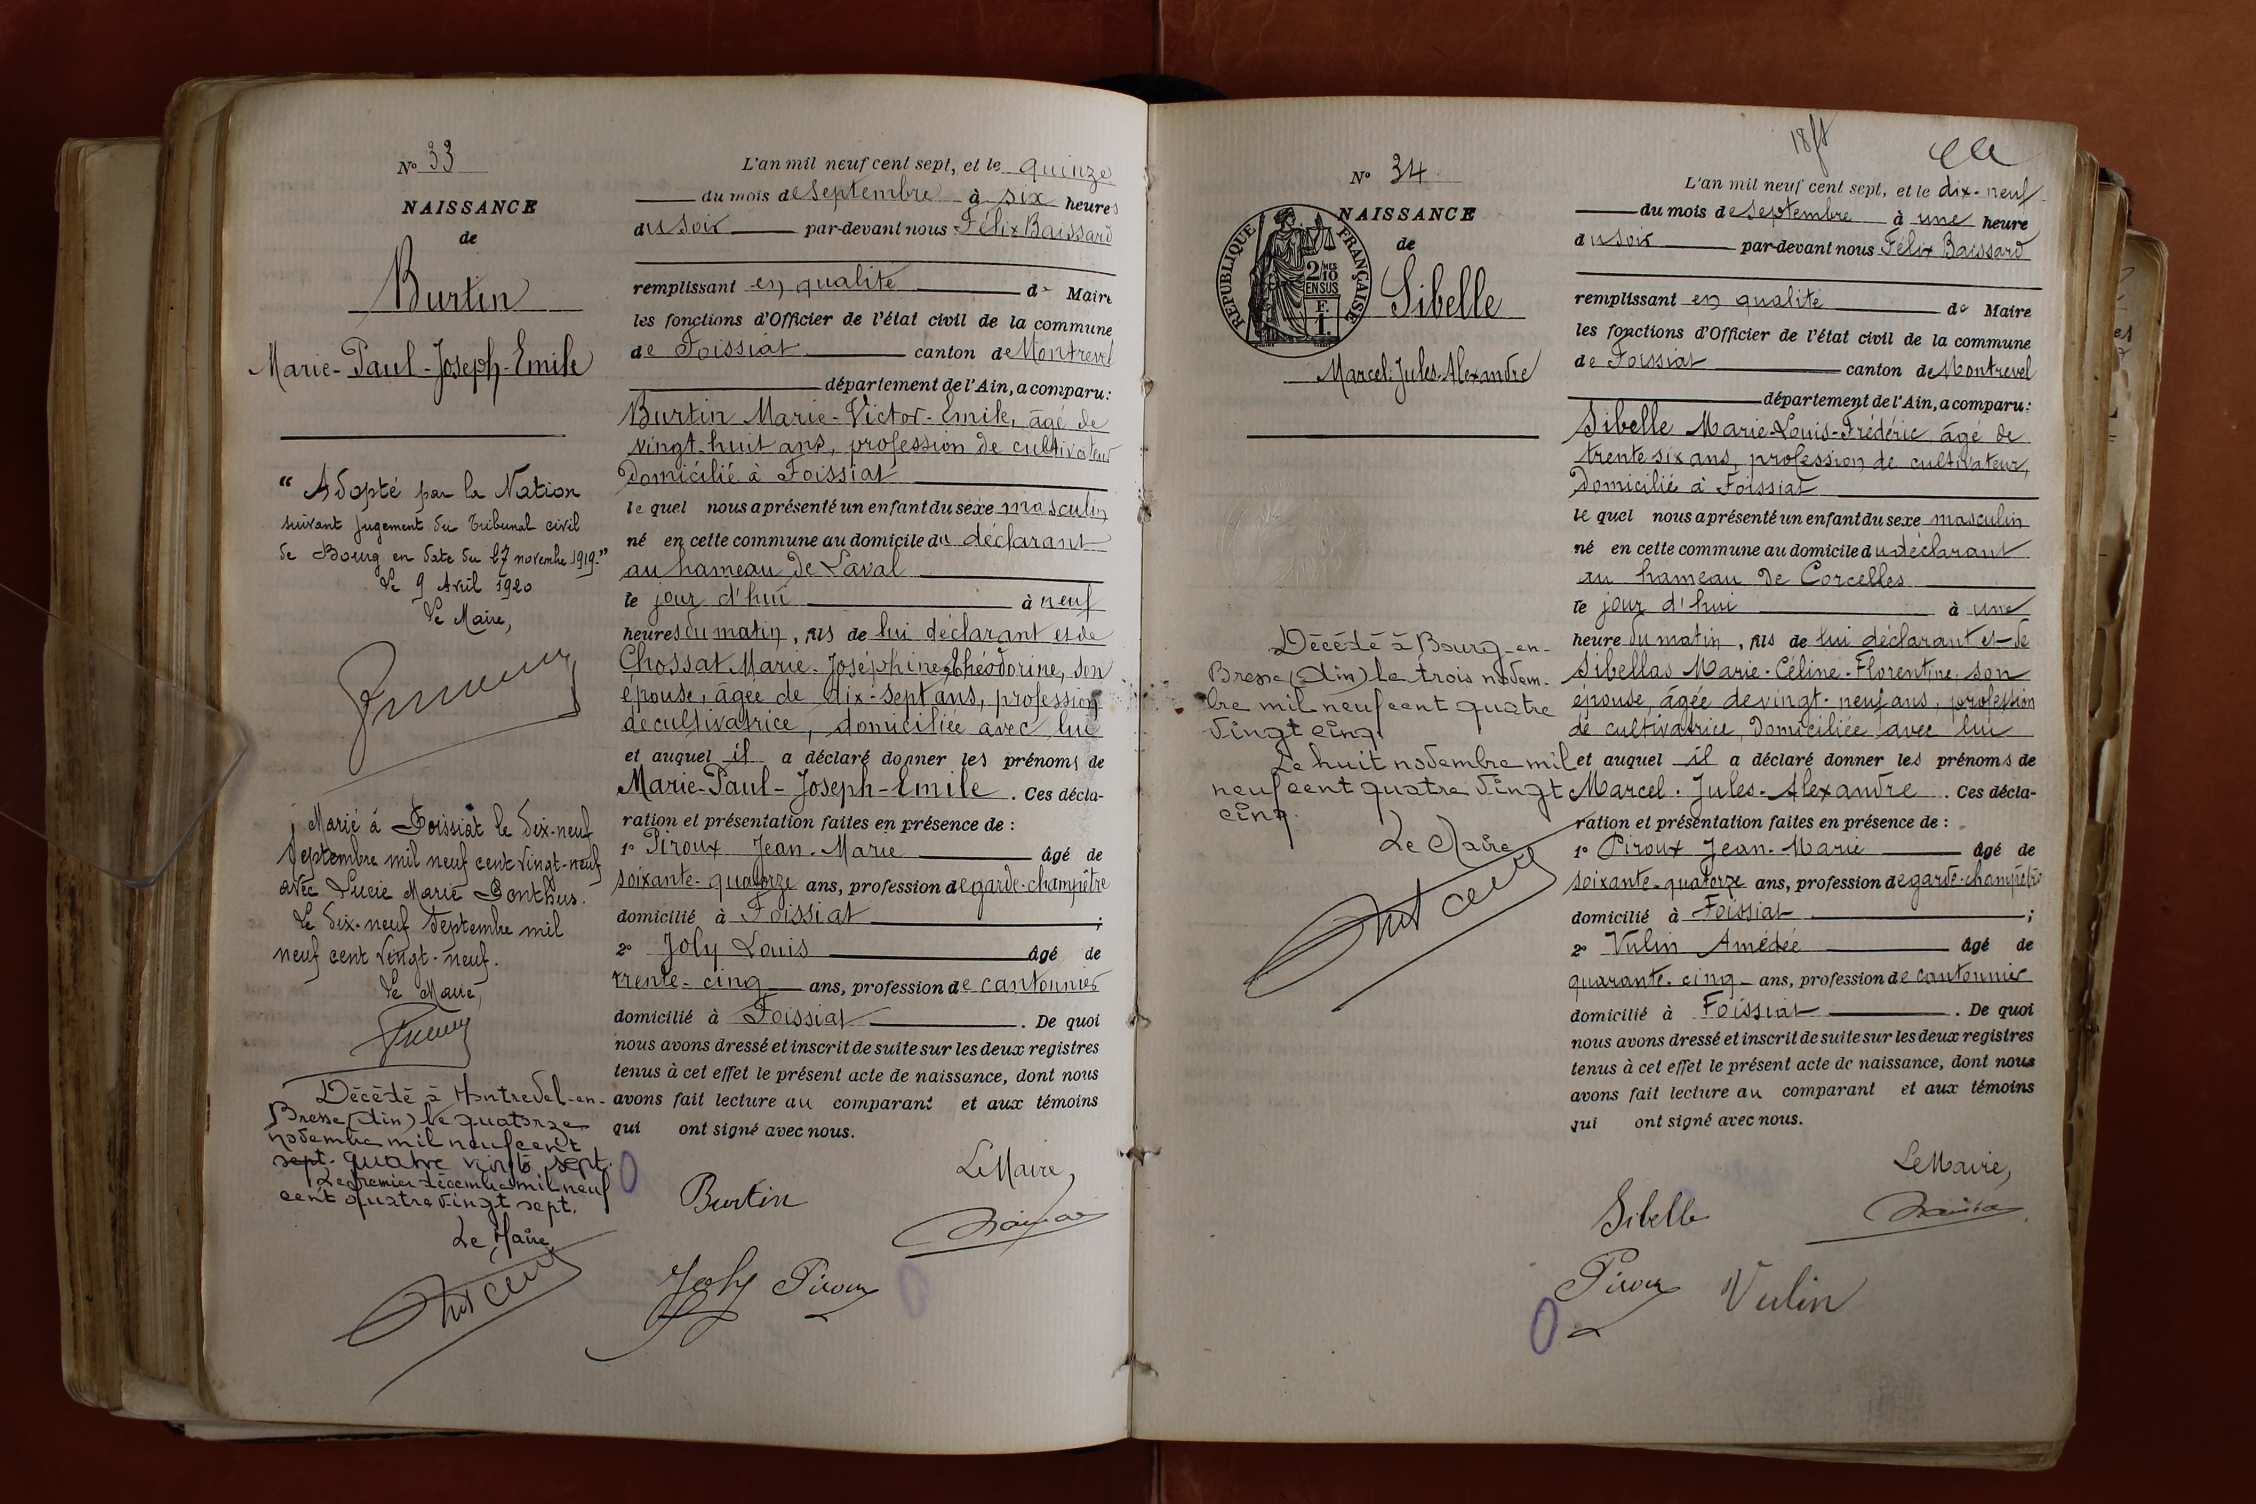 Nº 33
NAISSANCE
de
Burtin
Marie-Paul-Joseph-Emile
"Adopté par la Nation
suivant jugement du Tribunal civil
de Bourg en date du 27 novembre 1919."
Le 9 Avril 1920
Le Maire,
Marié à Foissiat le dix-neuf
Septembre mil neuf cent vingt-neuf
avec Lucie Marie Ponthus.
Le dix-neuf Septembre mil
neuf cent vingt-neuf.
Le Maire,
Décédé à Montrevel-en-
Bresse (Ain) le quatorze
novembre mil neuf cent
sept. quatre vingt sept.
Le premier décembre mil neuf
cent quatre vingt sept.
Le Maire
L'an mil neuf cent sept, et le quinze
du mois de septembre à six heures
du soir par-devant nous Félix Baissard
remplissant en qualité de Maire
les fonctions d'Officier de l'état civil de la commune
de Foissiat canton de Montrevel
département de l'Ain, a comparu:
Burtin Marie-Victor-Emile, âgé de
vingt-huit ans, profession de cultivateur
domicilié à Foissiat
le quel nous a présenté un enfant du sexe masculin
né en cette commune au domicile du déclarant
au hameau de Laval
le jour d'hui à neuf
heures du matin, fils de lui déclarant et de
Chossat Marie-Joséphine-Théodorine, son
épouse, âgée de dix-sept ans, profession
de cultivatrice, domiciliée avec lui
et auquel il a déclaré donner les prénoms de
Marie-Paul-Joseph-Emile. Ces décla-
ration et présentation faites en présence de:
1º Piroux Jean-Marie âgé de
soixante-quatorze ans, profession de garde-champêtre
domicilié à Foissiat;
2º Joly Louis âgé de
trente-cinq ans, profession de cantonnier
domicilié à Foissiat. De quoi
nous avons dressé et inscrit de suite sur les deux registres
tenus à cet effet le présent acte de naissance, dont nous
avons fait lecture au comparant et aux témoins
qui ont signé avec nous.
Le Maire,
Burtin
Joly Piroux
18 ft
Nº 34
NAISSANCE
de
RÉPUBLIQUE FRANÇAISE
2/10
EN SUS
F.
1.
Sibelle
Marcel-Jules-Alexandre
Décédé à Bourg-en-
Bresse (Ain) le trois novem-
bre mil neuf cent quatre
vingt cinq.
Le huit novembre mil
neuf cent quatre vingt
cinq.
Le Maire
L'an mil neuf cent sept, et le dix-neuf
du mois de septembre à une heure
du soir par-devant nous Félix Baissard
remplissant en qualité de Maire
les fonctions d'Officier de l'état civil de la commune
de Foissiat canton de Montrevel
département de l'Ain, a comparu:
Sibelle Marie-Louis-Frédéric âgé de
trente six ans, profession de cultivateur,
domicilié à Foissiat
le quel nous a présenté un enfant du sexe masculin
né en cette commune au domicile du déclarant
au hameau de Corcelles
le jour d'hui à une
heure du matin, fils de lui déclarant et de
Sibellas Marie-Céline-Florentine, son
épouse, âgée de vingt-neuf ans, profession
de cultivatrice, domiciliée avec lui
et auquel il a déclaré donner les prénoms de
Marcel-Jules-Alexandre. Ces décla-
ration et présentation faites en présence de:
1º Piroux Jean-Marie âgé de
soixante-quatorze ans, profession de garde-champêtre
domicilié à Foissiat;
2º Vulin Amédée âgé de
quarante-cinq ans, profession de cantonnier
domicilié à Foissiat. De quoi
nous avons dressé et inscrit de suite sur les deux registres
tenus à cet effet le présent acte de naissance, dont nous
avons fait lecture au comparant et aux témoins
qui ont signé avec nous.
Le Maire,
Sibelle
Piroux Vulin